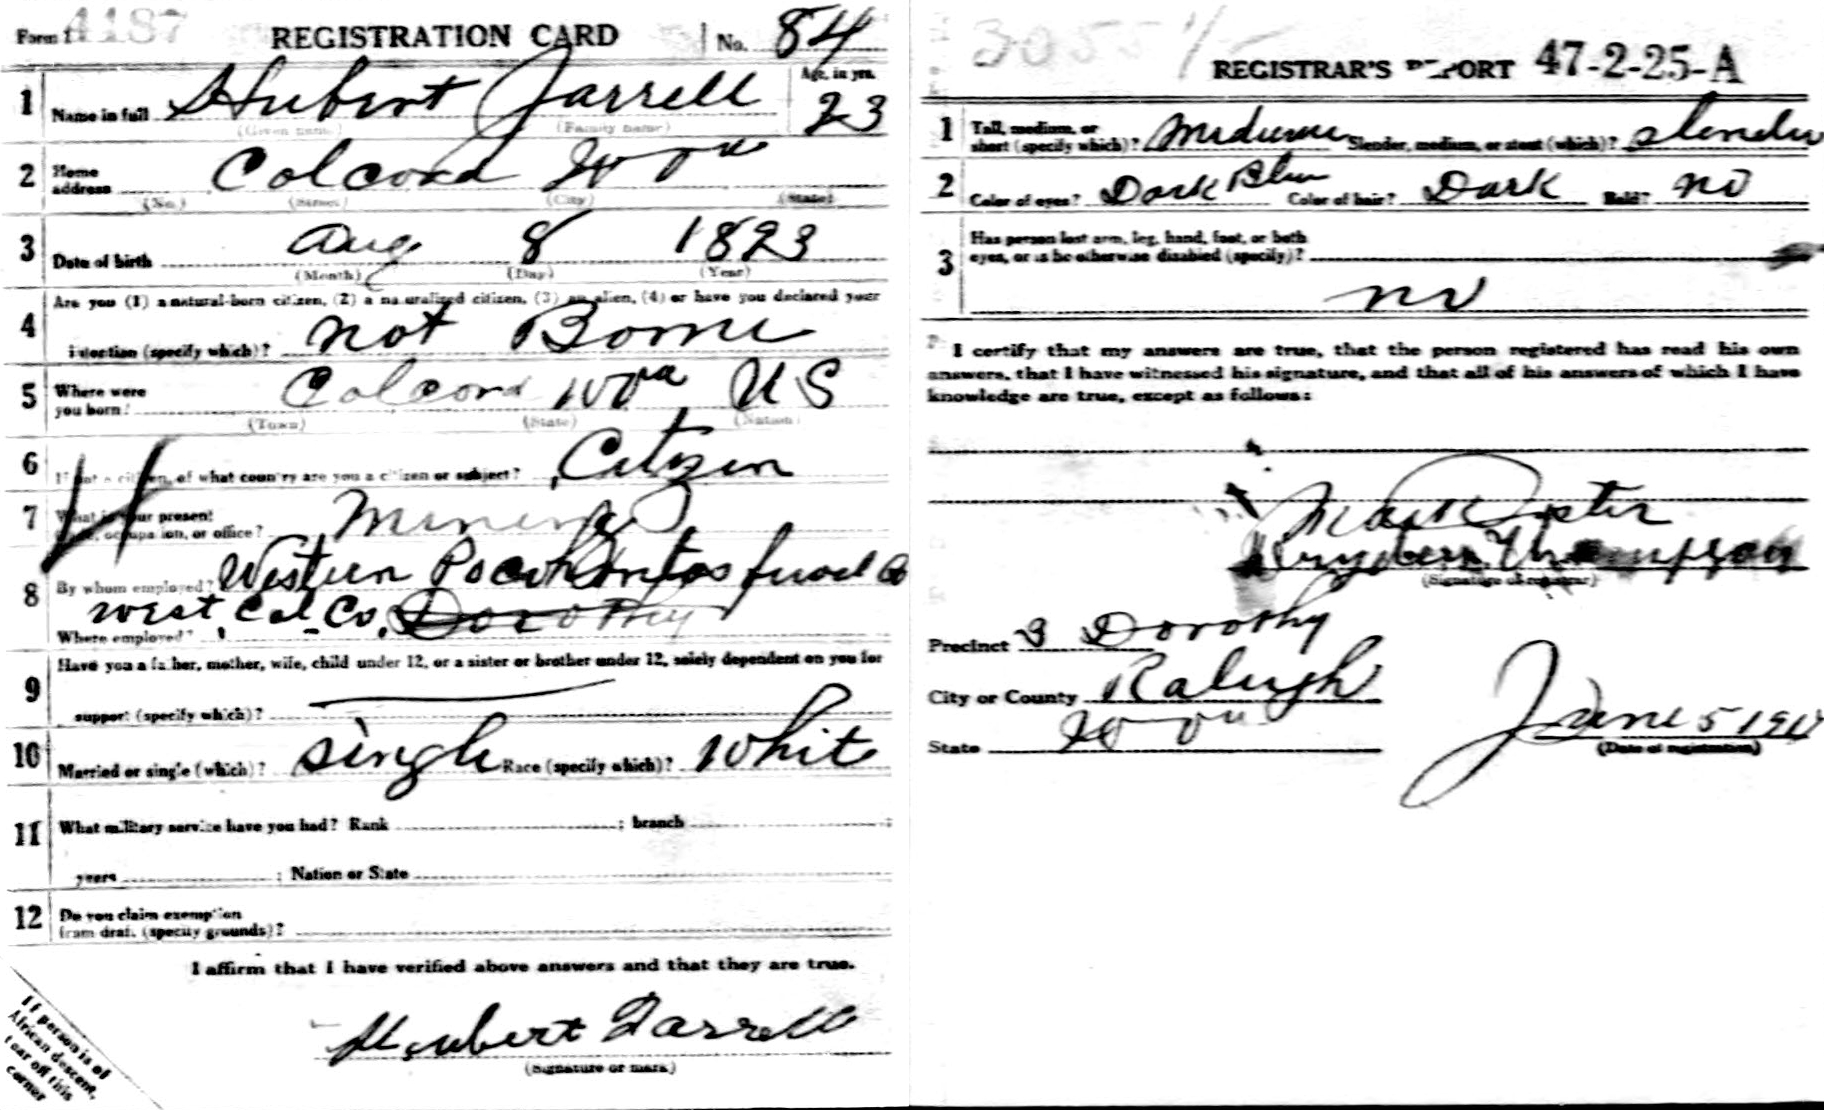 Form 1 4187 REGISTRATION CARD No. 84
1 Name in full Hubert Jarrell Age, in yrs. 23
(Given name) (Family name)
2 Home address Colcord W Va
(No.) (Street) (City) (State)
3 Date of birth Aug 8 1893
(Month) (Day) (Year)
4 Are you (1) a natural-born citizen, (2) a naturalized citizen, (3) an alien, (4) or have you declared your
intention (specify which)? not Borne
5 Where were you born? Colcord W Va US
(Town) (State) (Nation)
6 If not a citizen, of what country are you a citizen or subject? Citizen
7 What is your present
trade, occupation, or office? Mining
8 By whom employed? Western Pocohontas fuel Co
West. Col. Co. Dorothy
Where employed?
9 Have you a father, mother, wife, child under 12, or a sister or brother under 12, solely dependent on you for
support (specify which)?
10 Married or single (which)? single Race (specify which)? White
11 What military service have you had? Rank ; branch ;
years ; Nation or State
12 Do you claim exemption
from draft (specify grounds)?
I affirm that I have verified above answers and that they are true.
Hubert Jarrell
(Signature or mark)
If person is of
African descent,
tear off this
corner
3055 1/-
REGISTRAR'S REPORT 47-2-25-A
1 Tall, medium, or
short (specify which)? Medium Slender, medium, or stout (which)? slender
2 Color of eyes? Dark Blue Color of hair? Dark Bald? no
3 Has person lost arm, leg, hand, foot, or both
eyes, or is he otherwise disabled (specify)?
no
I certify that my answers are true, that the person registered has read his own
answers, that I have witnessed his signature, and that all of his answers of which I have
knowledge are true, except as follows:
Thompson
(Signature of registrar)
Precinct 3 Dorothy
City or County Raleigh
State W Va
June 5 191
(Date of registration)